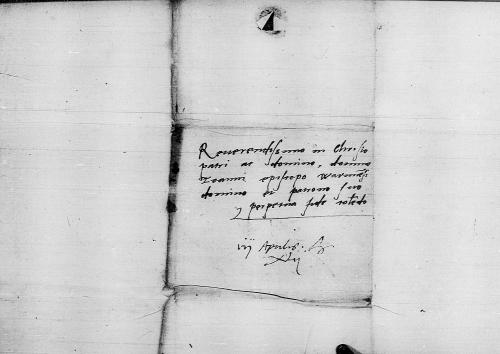 Reverendissimo in Christo
patri ac domino, domino
Ioanni episcopo warmiẽsi
domino et patrono suo
perpetua fide colẽdo
Aprilis